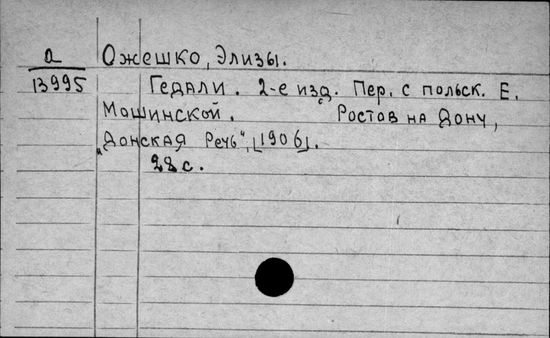 а Ожешко, Элизы.
13995 Гедали. 2-е изд. Пер. с польск. Е.
Мошинской. Ростов на Дону,
„Донская Речь“, [1906].
28 с.